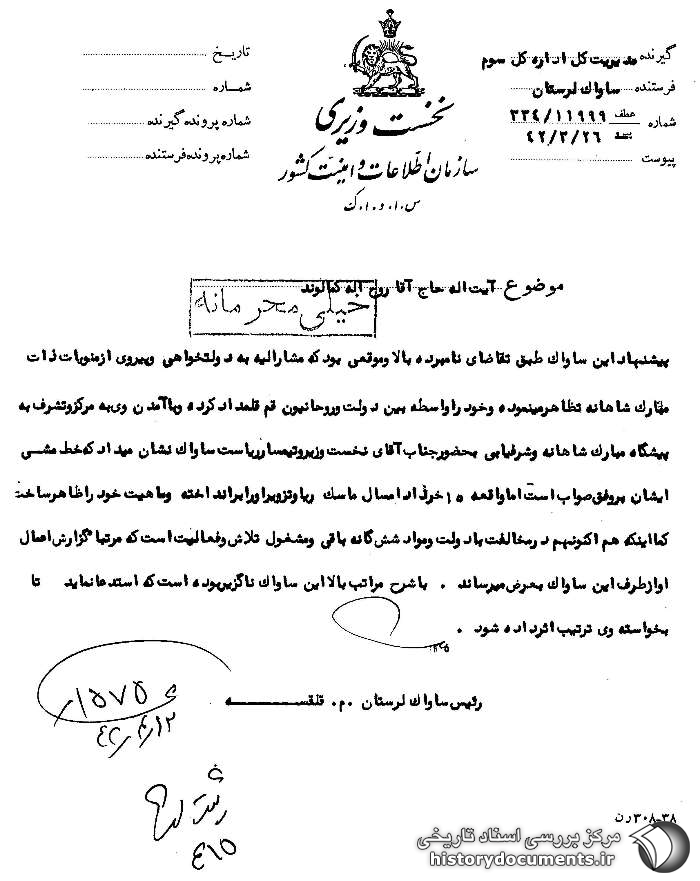 گیرنده مدیریت کل اداره کل سوم
فرستنده ساواک لرستان
شماره عطف ۳۳۴/۱۱۹۹۹
۴۲/۳/۲۶
پیوست
نخست وزیری
سازمان اطلاعات و امنیت کشور
س.ا.و.ا.ک
تاریخ
شماره
شماره پرونده گیرنده
شماره پرونده فرستنده
موضوع آیت اله حاج آقا روح اله کمالوند
خیلی محرمانه
پیشنهاد این ساواک طبق تقاضای نامبرده بالا وموقعی بود که مشارالیه به دولتخواهی وپیروی از منویات ذات
ملوکانه شاهانه تظاهر مینموده وخود را واسطه بین دولت وروحانیون قم قلمداد کرده وباآمدن وی به مرکز وتشرف به
پیشگاه مبارک شاهانه وشرفیابی بحضور جناب آقای نخست وزیر وتیمسار ریاست ساواک نشان میداد که خط مشی
ایشان بروفق صواب است اما واقعه ۱۵ خرداد امسال ماسک ریا وتزویر اورا برانداخته وماهیت خود را ظاهر ساخت
کما اینکه هم اکنونهم در مخالفت با دولت ومواد شش گانه باقی ومشغول تلاش وفعالیت است که مرتبا گزارش اعمال
او از طرف این ساواک بعرض میرساند . باشرح مراتب بالا این ساواک ناگزیر بوده است که استدعا نماید تا
بخواسته وی ترتیب اثر داده شود .
رئیس ساواک لرستان .م. قلقسه
۱۵۷۵
۴۲/۴/۱۲
۴/۱۵
۳۰۸-۳۸ رن
مرکز بررسی اسناد تاریخی
historydocuments.ir